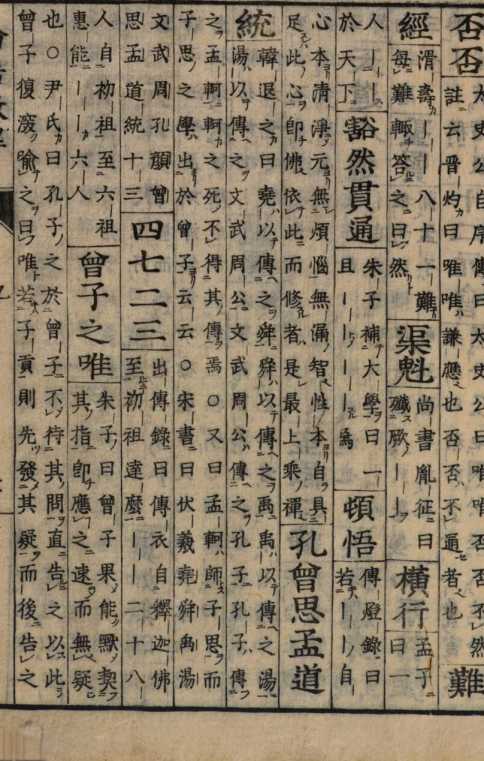 否否
太史公自序傳曰唯唯否否不然
註云晋灼曰唯唯謙應也否否不通者也
難
經
渭壽｜｜八十一難
每難輙答之曰然
渠魁
尚書胤征曰
殲厥｜｜
横行
孟子
曰一
人｜｜
於天下
豁然貫通
朱子補大學曰一
且｜｜｜｜焉
頓悟
傳燈錄曰
若｜｜自
心本清淨元無煩惱無漏智性本自具
足此心即佛依此而修者是最上乘禪
孔曾思孟道
統
韓退之曰堯以傳之舜舜以傳之禹禹以傳之湯
湯以傳之文武周公文武周公傳之孔子孔子傳
之孟軻軻之死不得其傳焉○又曰孟軻師子思而
子思之學出於曾子云云○宋書曰伏羲堯舜禹湯
文武周孔顔曾
思孟道統十三
四七二三
出傳錄曰傳衣自釋迦佛
至初祖達麼｜｜二十八
人自初祖至六祖
惠能｜｜六人
曾子之唯
朱子曰曾子果能默契
其指即應之速而無疑
也○尹氏曰孔子之於曾子不待其問直告之以此
曾子復深喩之曰唯若子貢則先發其疑而後告之